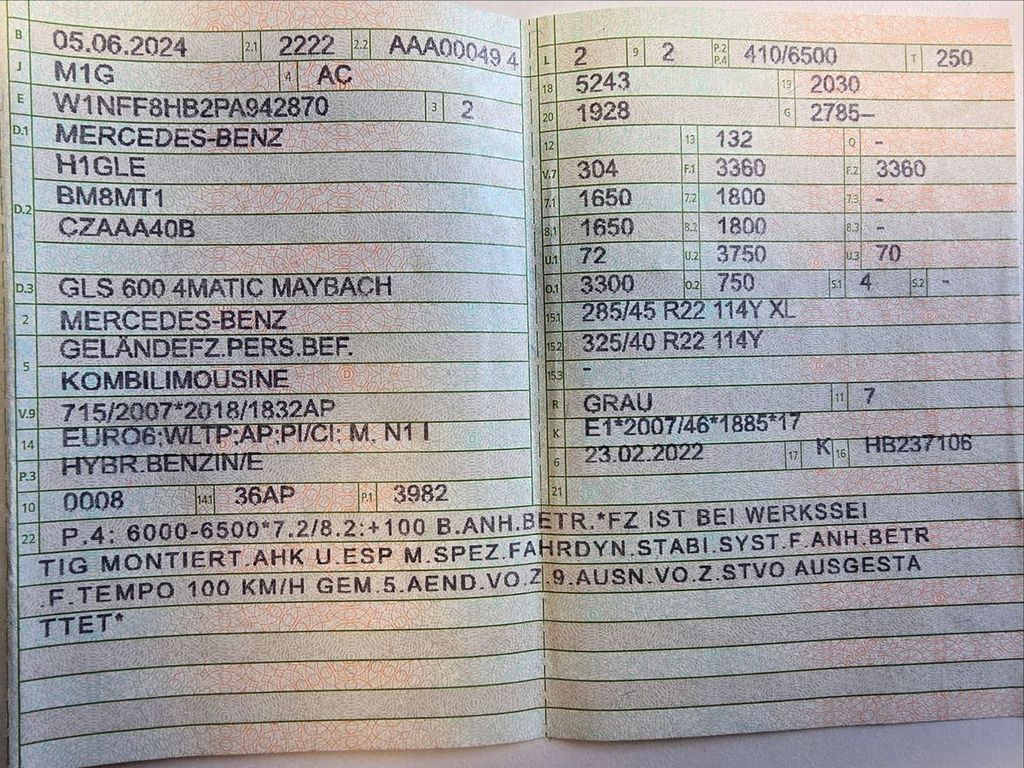 B 05.06.2024 2.1 2222 2.2 AAA00049 4
J M1G 4 AC
E W1NFF8HB2PA942870 3 2
D.1 MERCEDES-BENZ
H1GLE
D.2 BM8MT1
CZAAA40B
D.3 GLS 600 4MATIC MAYBACH
2 MERCEDES-BENZ
5 GELÄNDEFZ.PERS.BEF.
KOMBILIMOUSINE
V.9 715/2007*2018/1832AP
14 EURO6;WLTP;AP;PI/CI; M, N1 I
P.3 HYBR.BENZIN/E
10 0008 14.1 36AP P.1 3982
L 2 9 2 P.2 P.4 410/6500 T 250
18 5243 19 2030
20 1928 G 2785–
12 13 132 Q -
V.7 304 F.1 3360 F.2 3360
7.1 1650 7.2 1800 7.3 -
8.1 1650 8.2 1800 8.3 -
U.1 72 U.2 3750 U.3 70
O.1 3300 O.2 750 S.1 4 S.2 -
15.1 285/45 R22 114Y XL
15.2 325/40 R22 114Y
15.3 -
R GRAU 11 7
K E1*2007/46*1885*17
6 23.02.2022 17 K 16 HB237106
21
22 P.4: 6000-6500*7.2/8.2:+100 B.ANH.BETR.*FZ IST BEI WERKSSEI
TIG MONTIERT.AHK U.ESP M.SPEZ.FAHRDYN.STABI.SYST.F.ANH.BETR
.F.TEMPO 100 KM/H GEM.5.AEND.VO.Z.9.AUSN.VO.Z.STVO AUSGESTA
TTET*